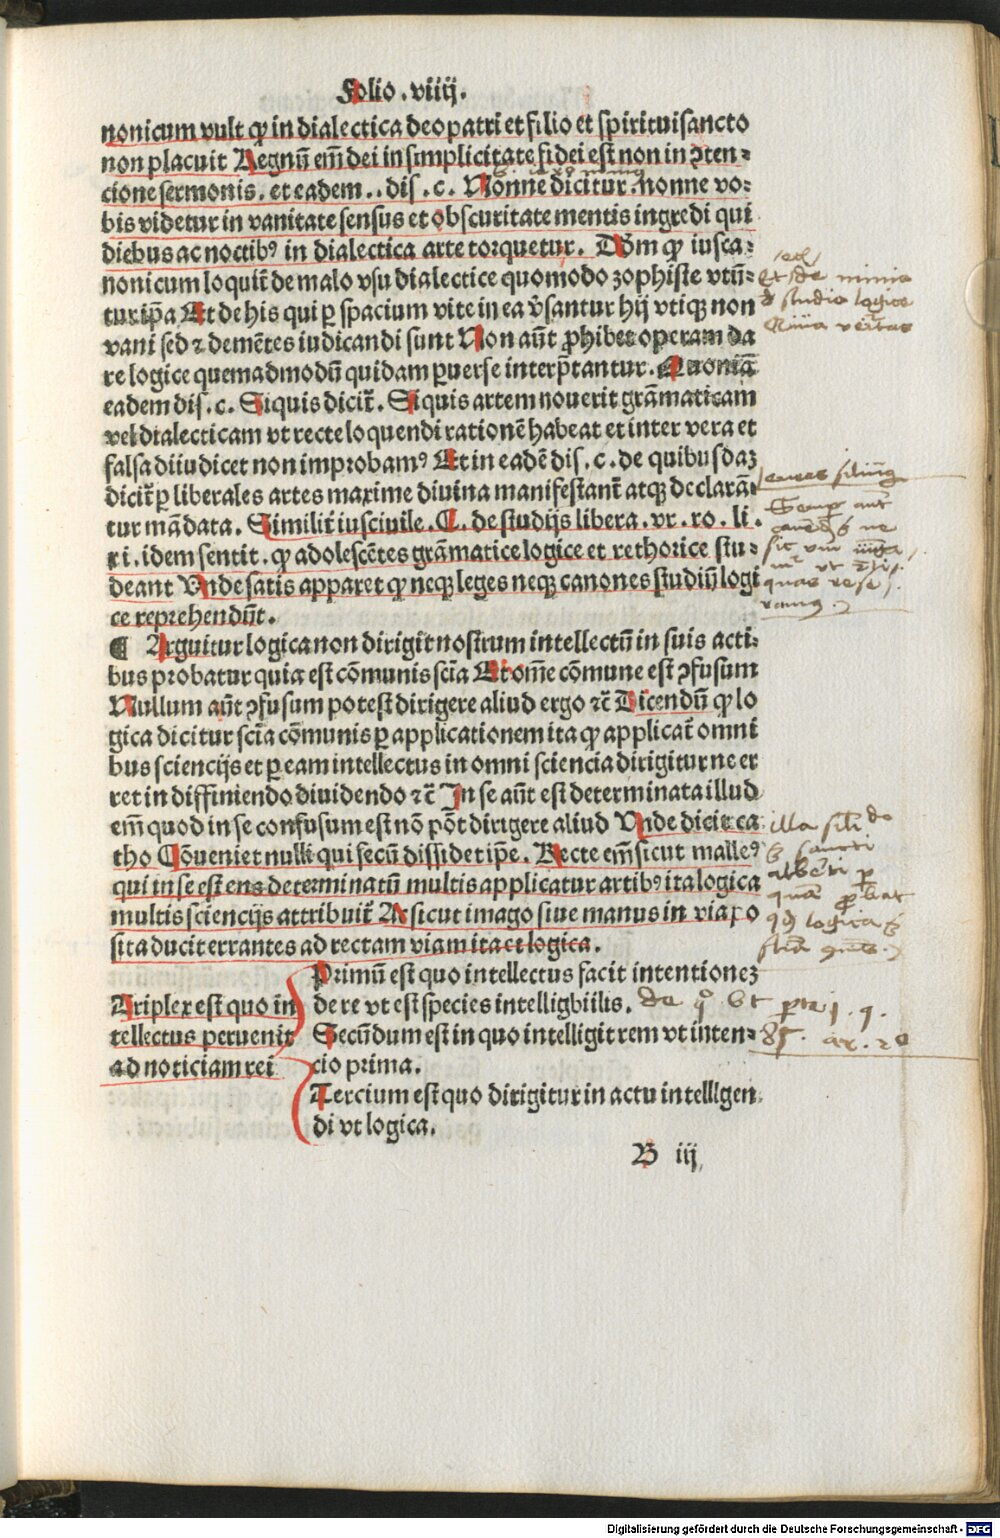 Folio .viiij.
nonicum vult ꝙ in dialectica deo patri et filio et spirituisancto
non placuit Regnũ em̃ dei in simplicitate fidei est non in ꝯten⸗
cione sermonis. et eadem .. dis .c. Nonne dicitur. nonne vo⸗
bis videtur in vanitate sensus et obscuritate mentis ingredi qui
diebus ac noctibꝰ in dialectica arte torquetur. Dõm ꝙ iusca⸗
nonicum loquit̃ de malo vsu dialectice quomodo zophiste vtũ⸗
tur ip̃a Et de his qui ꝑ spacium vite in ea v̉santur hij vtiqꝫ non
vani sed ⁊ demẽtes iudicandi sunt Non aũt ꝓhibet operam da
re logice quemadmodũ quidam ꝑuerse interp̃tantur. Quoniã
eadem dis .c. Siquis dicit̃. Siquis artem nouerit grãmaticam
vel dialecticam vt recte loquendi rationẽ habeat et inter vera et
falsa diiudicet non improbamꝰ Et in eadẽ dis .c. de quibusdaꝫ
dicit̃ ꝑ liberales artes maxime diuina manifestant̃ atqꝫ declarã⸗
tur mãdata. Similit̃ ius ciuile. C. de studijs libera. vr. ro. li.
xi. idem sentit. ꝙ adolescẽtes grãmatice logice et rethorice stu⸗
deant Vnde satis apparet ꝙ neqꝫ leges neqꝫ canones studiũ logi
ce reprehendũt.
¶ Arguitur logica non dirigit nostrum intellectũ in suis acti⸗
bus probatur quia est cõmunis scĩa Et om̃e cõmune est ꝯfusum
Nullum aũt ꝯfusum potest dirigere aliud ergo ⁊c̃ Dicendũ ꝙ lo
gica dicitur scĩa cõmunis ꝑ applicationem ita ꝙ applicat̃ omni
bus sciencijs et ꝑ eam intellectus in omni sciencia dirigitur ne er
ret in diffiniendo diuidendo ⁊c̃ In se aũt est determinata illud
em̃ quod in se confusum est nõ põt dirigere aliud Vnde dicit ca
tho Cõueniet nulli qui secũ dissidet ip̃e. Recte em̃ sicut malleꝰ
qui in se est ens determinatũ multis applicatur artibꝰ ita logica
multis sciencijs attribuit̃ Asicut imago siue manus in via po
sita ducit errantes ad rectam viam ita et logica.
Triplex est quo in
tellectus peruenit
ad noticiam rei
Primũ est quo intellectus facit intentioneꝫ
de re vt est species intelligbiilis.
Secũdum est in quo intelligit rem vt inten⸗
cio prima.
Tercium est quo dirigitur in actu intelligen
di vt logica.
B iij
Digitalisierung gefördert durch die Deutsche Forschungsgemeinschaft - DFG